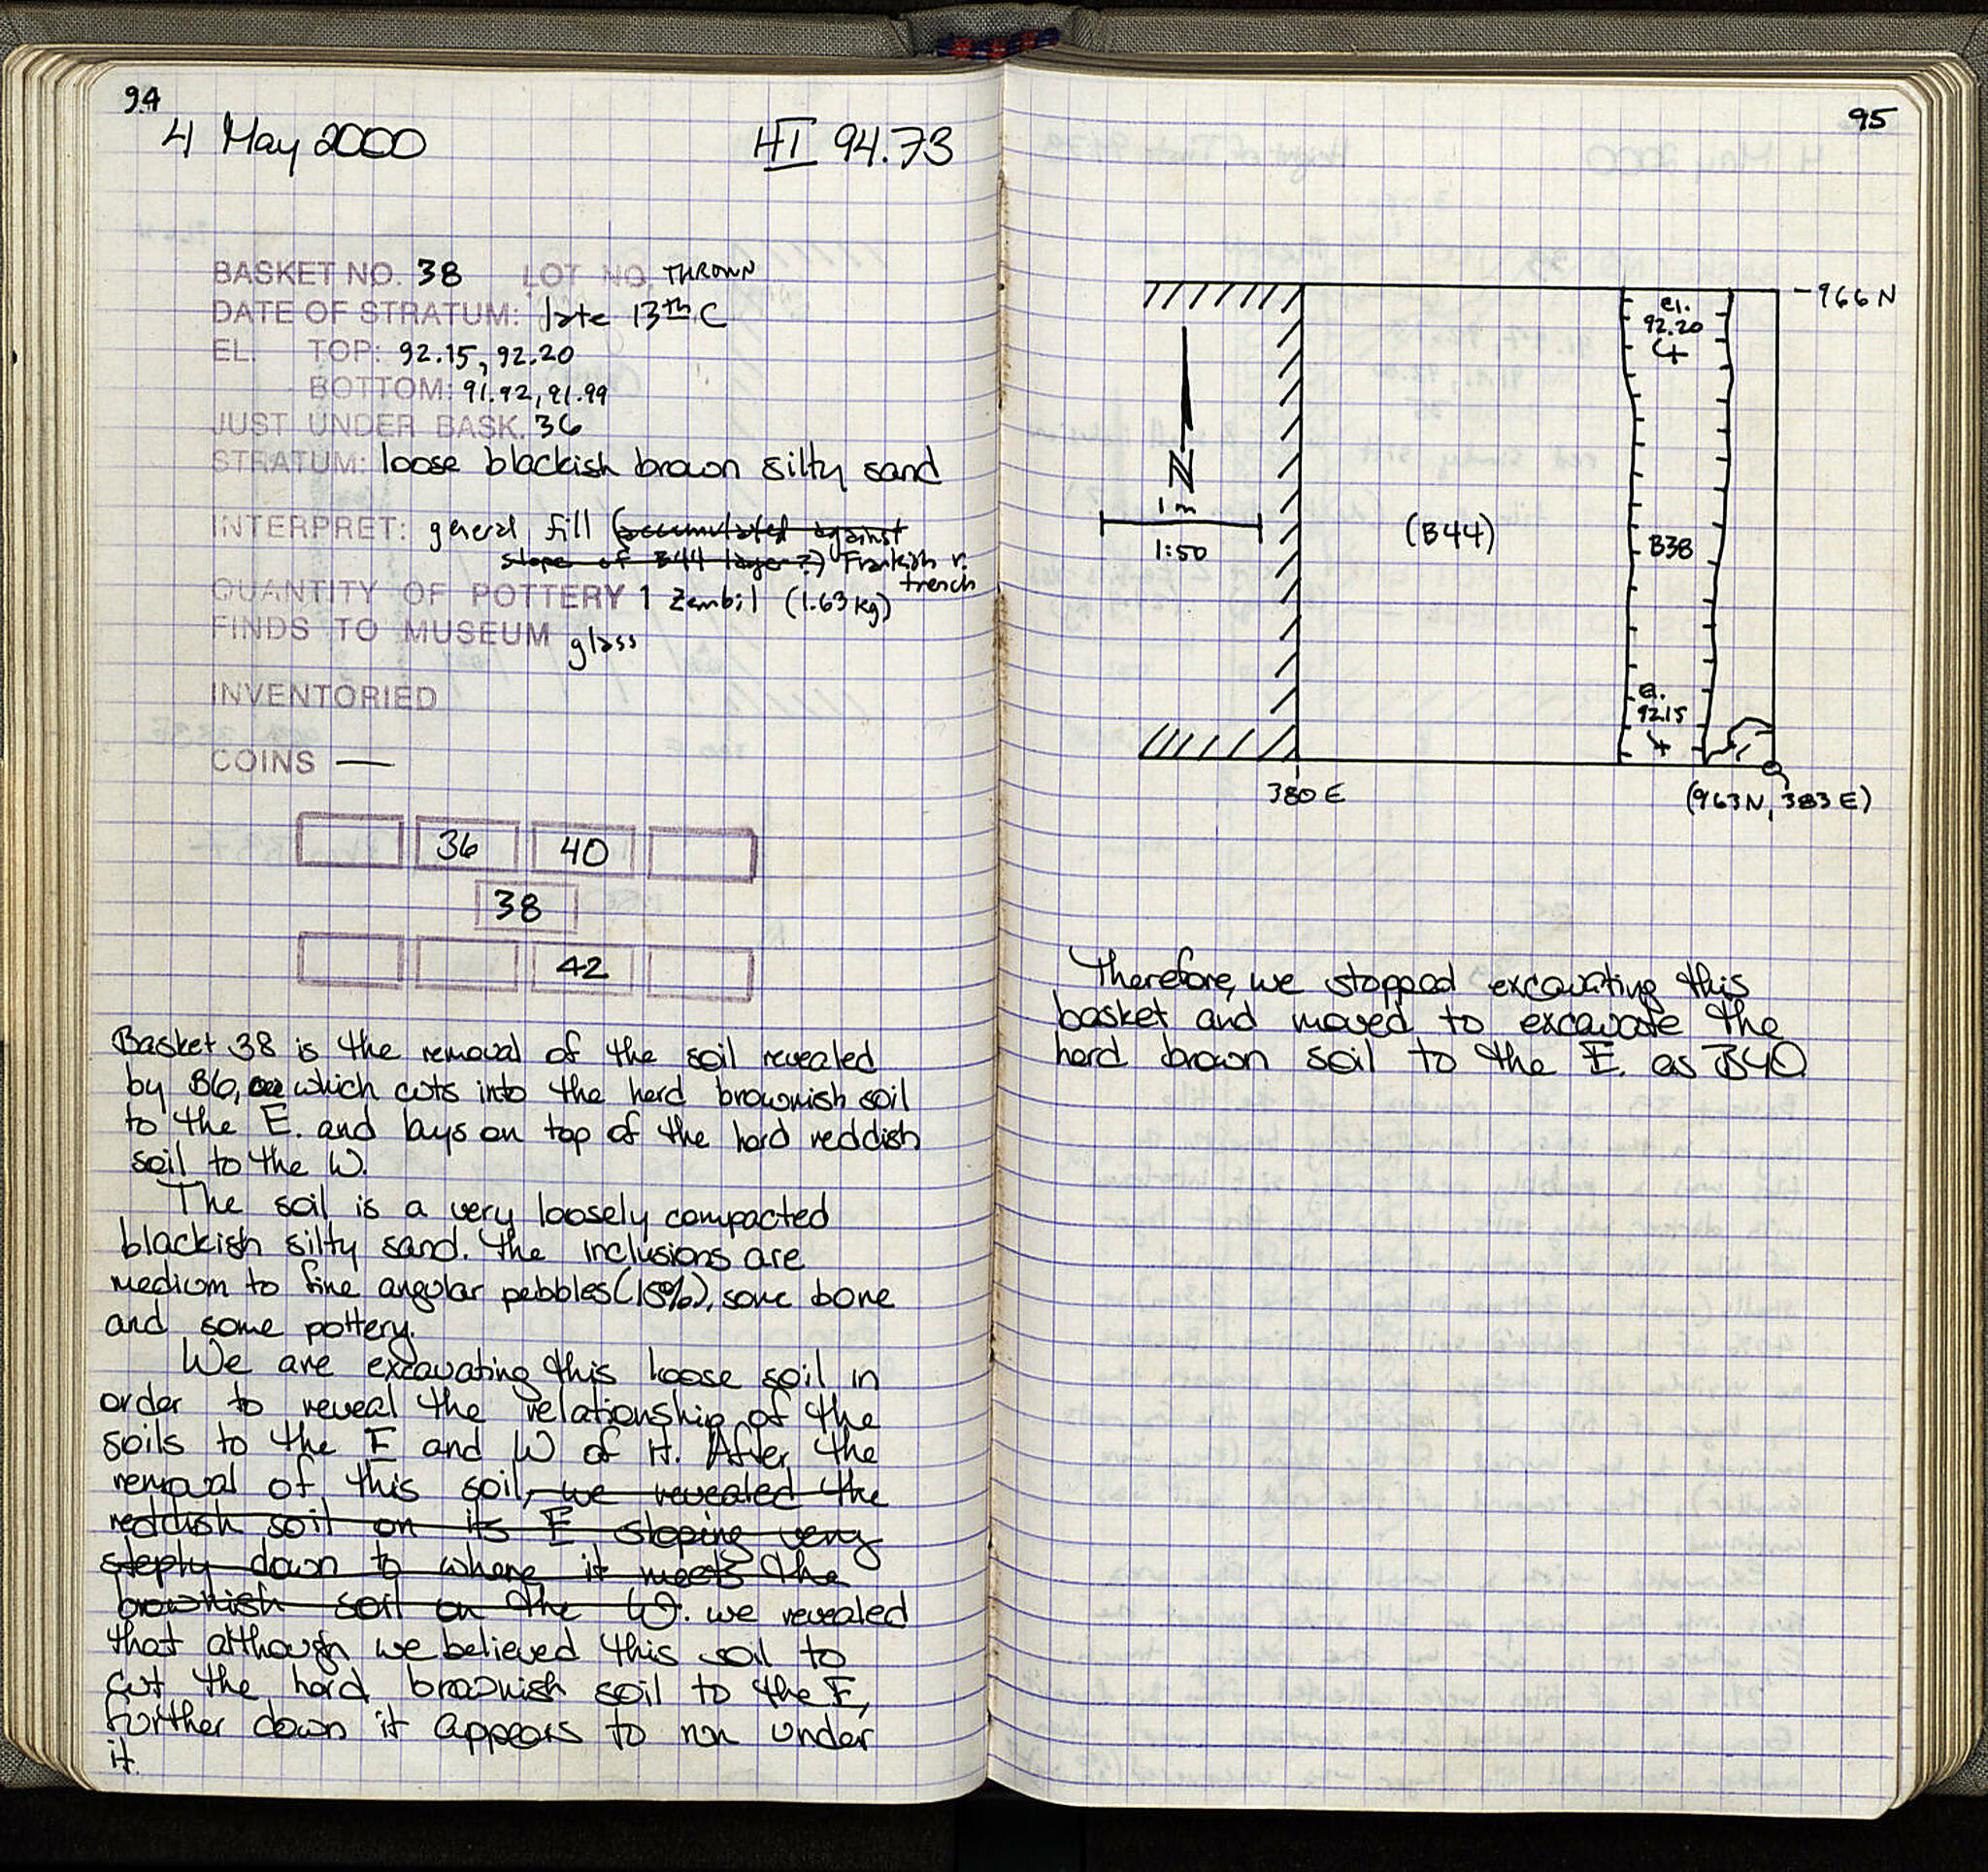 94
4 May 2000 HI 94.73
BASKET NO. 38 LOT NO. THROWN
DATE OF STRATUM: late 13th C
EL. TOP: 92.15, 92.20
BOTTOM: 91.92, 91.99
JUST UNDER BASK. 36
STRATUM: loose blackish brown silty sand
INTERPRET: general fill (accumulated against
slope of B44 layer?) Frankish r.
trench
QUANTITY OF POTTERY 1 Zembil (1.63 kg)
FINDS TO MUSEUM glass
INVENTORIED
COINS —
36 40
38
42
Basket 38 is the removal of the soil revealed
by B6, which cuts into the hard brownish soil
to the E. and lays on top of the hard reddish
soil to the W.
The soil is a very loosely compacted
blackish silty sand. The inclusions are
medium to fine angular pebbles (15%), some bone
and some pottery.
We are excavating this loose soil in
order to reveal the relationship of the
soils to the E and W of it. After the
removal of this soil, we revealed the
reddish soil on its E sloping very
steply down to where it meets the
brownish soil on the W. we revealed
that although we believed this soil to
cut the hard brownish soil to the E,
further down it appears to run under
it.
95
-966 N
el.
92.20
N
1 m
1:50
(B44)
B38
el.
92.15
380 E
(963N, 383 E)
Therefore, we stopped excavating this
basket and moved to excavate the
hard brown soil to the E. as B40